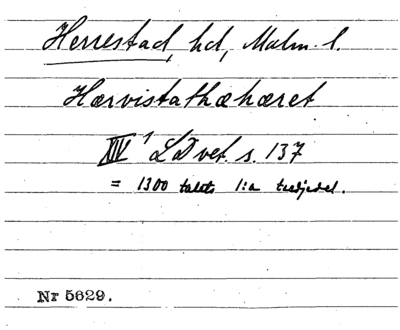 Herrestad, hd, Malm. l.
Hærvistathæhæret
XIV¹ LD vet. s. 137
= 1300 talets 1:a tredjedel.
Nr 5629.